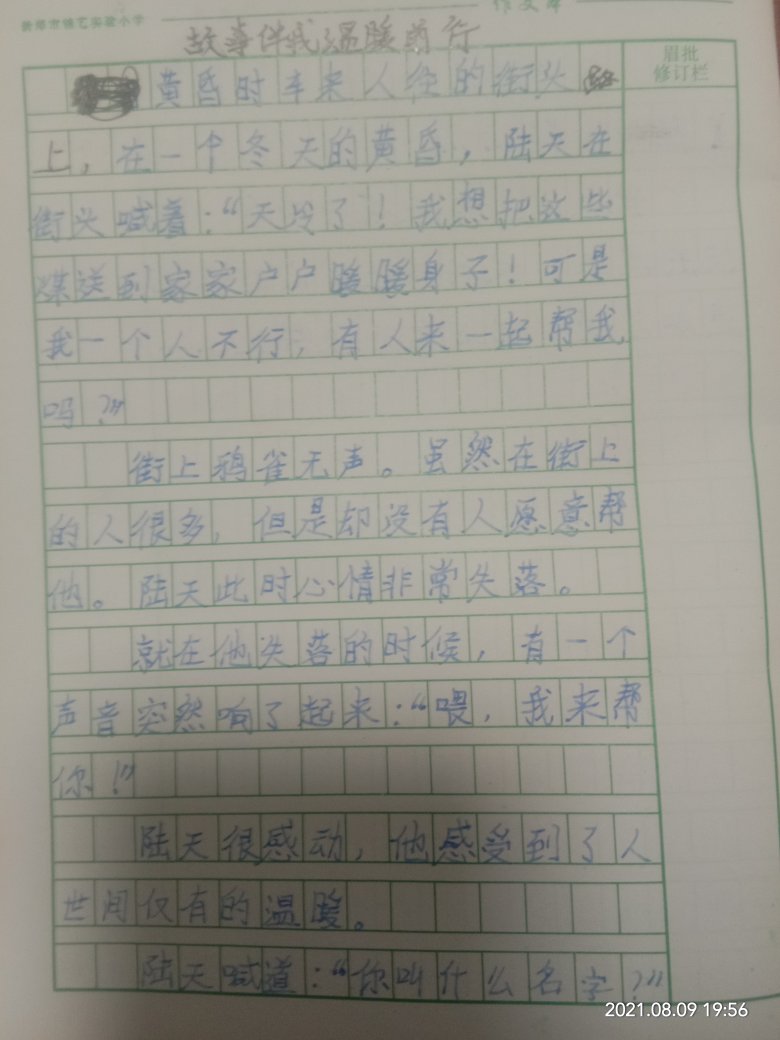 锦艺实验小学
作文本
故事伴我温暖前行
眉批
修订栏
黄昏时车来人往的街头
上，在一个冬天的黄昏，陆天在
街头喊着：“天冷了！我想把这些
煤送到家家户户暖暖身子！可是
我一个人不行，有人来一起帮我
吗？”
街上鸦雀无声。虽然在街上
的人很多，但是却没有人愿意帮
他。陆天此时心情非常失落。
就在他失落的时候，有一个
声音突然响了起来：“喂，我来帮
你！”
陆天很感动，他感受到了人
世间仅有的温暖。
陆天喊道：“你叫什么名字？”
2021.08.09 19:56